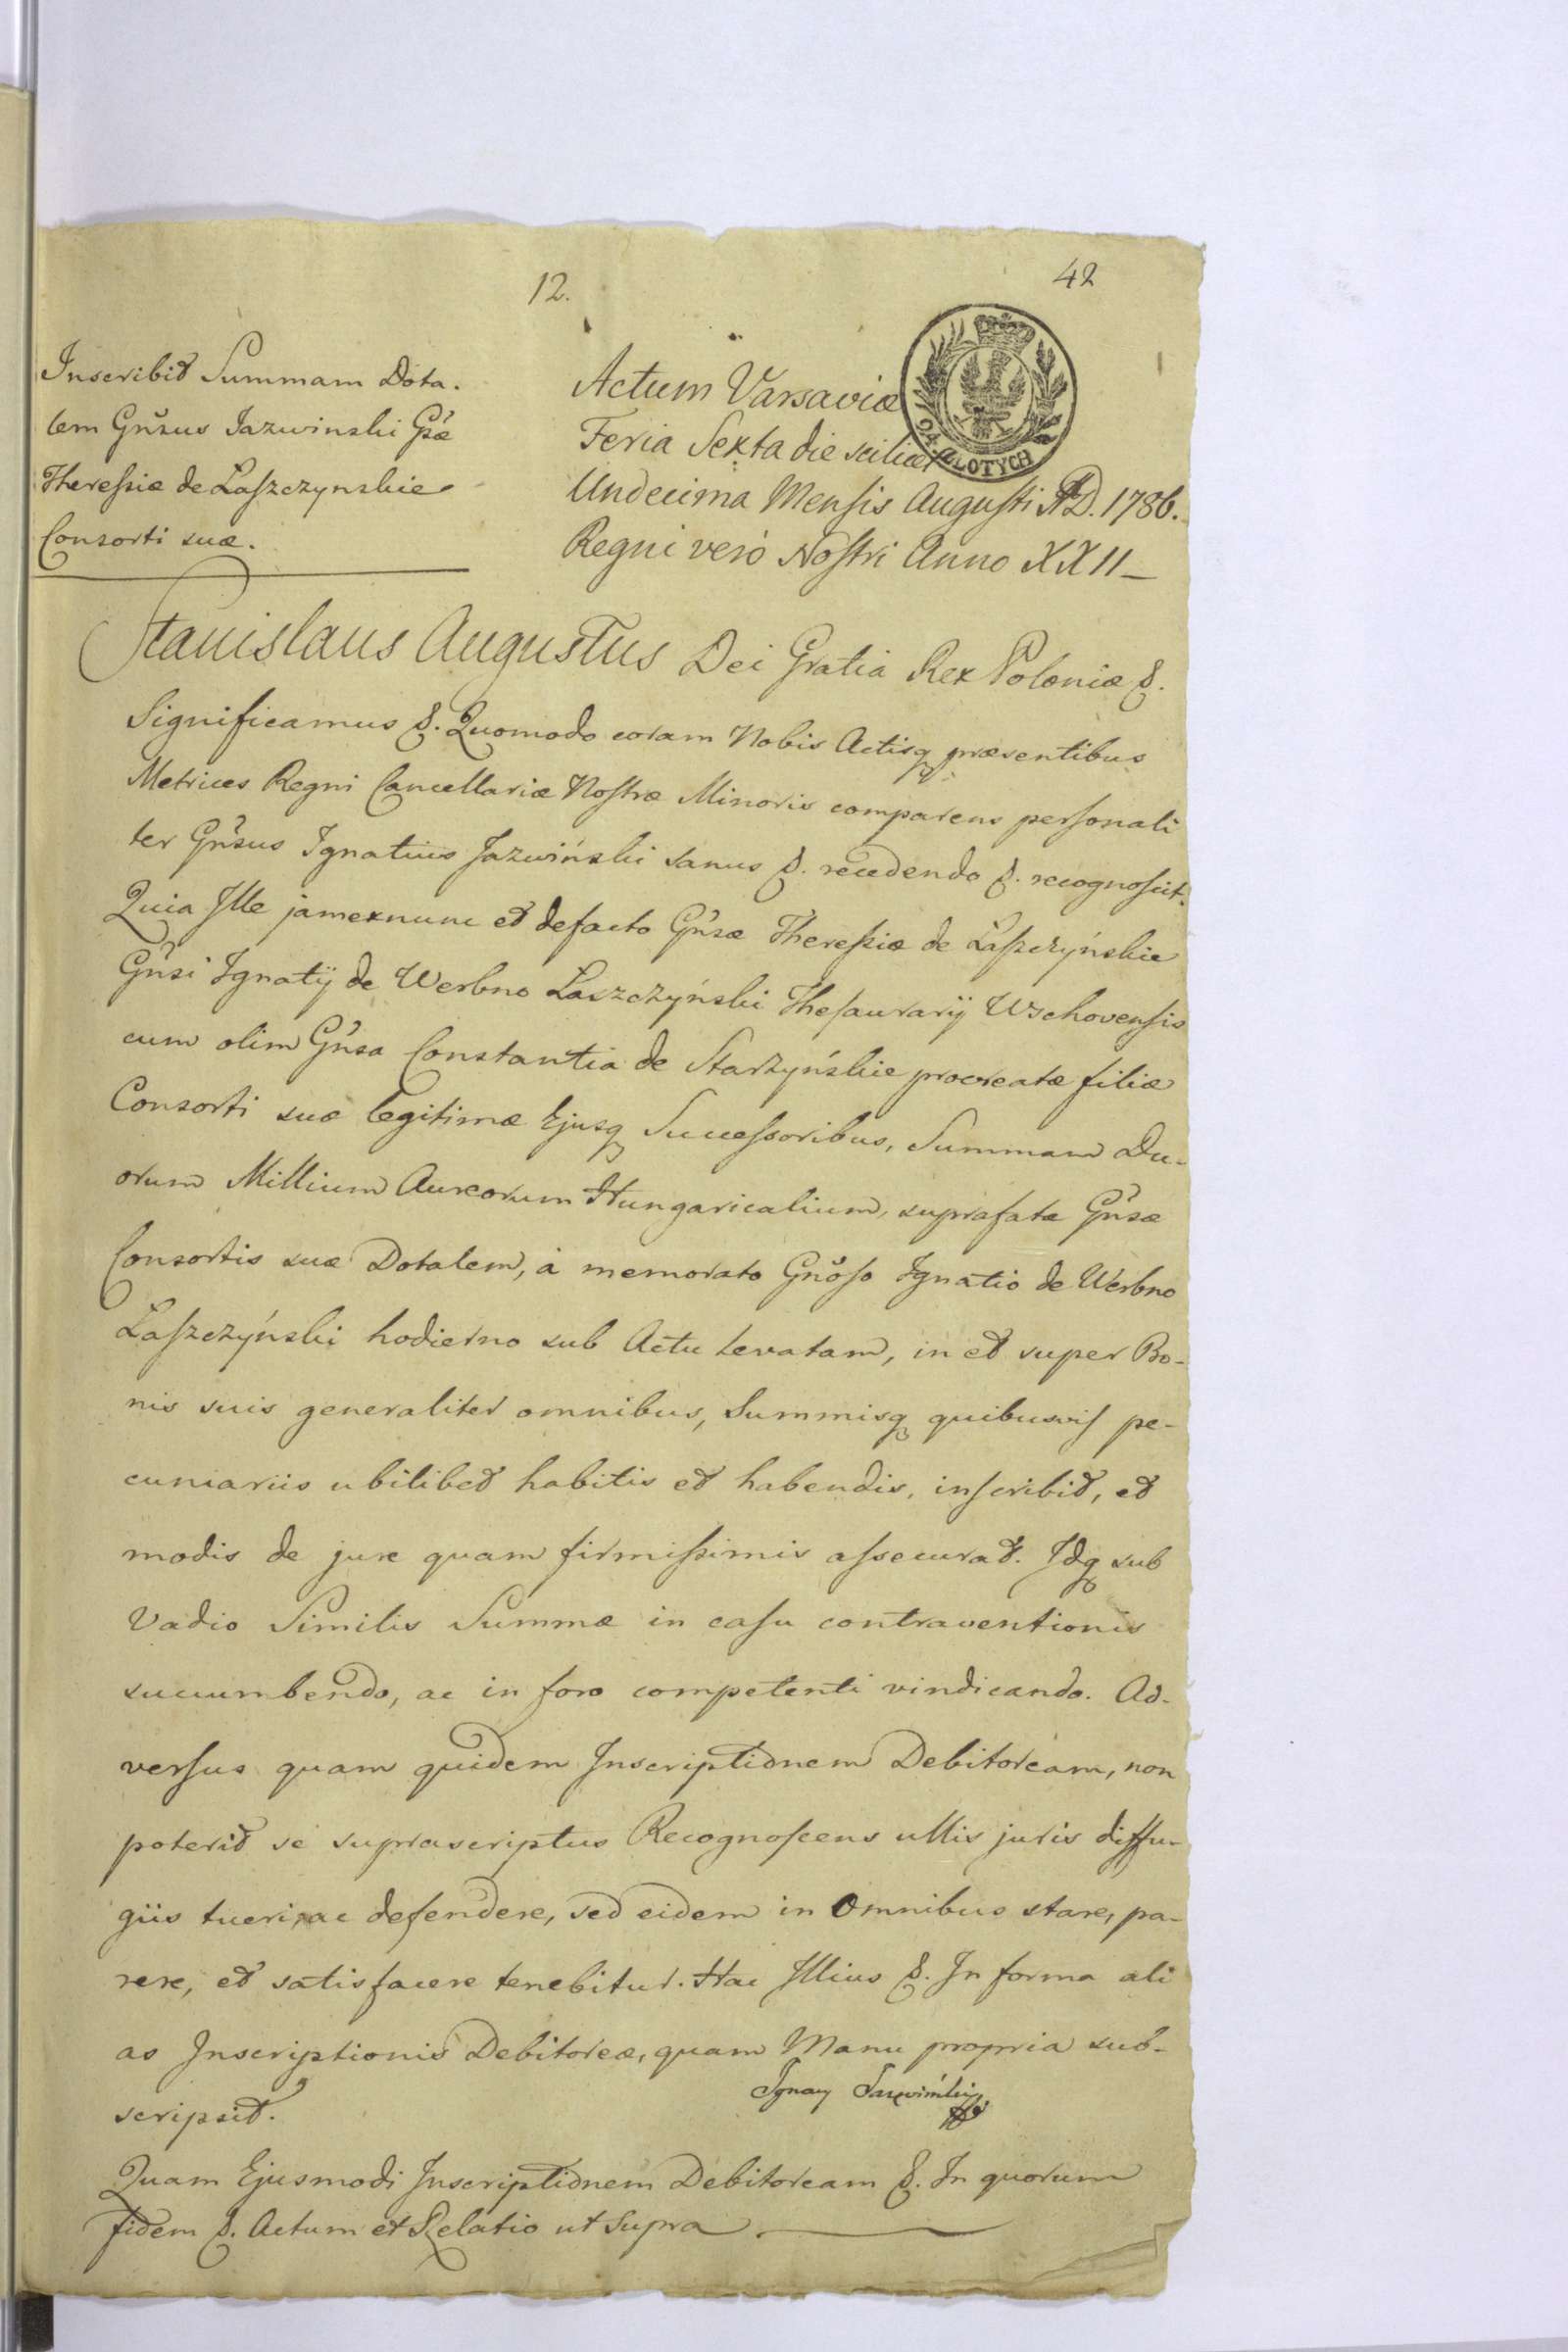 12.
42
Inscribit Summam Dota.
lem Gnsus Jazwinski Gsæ
Theressiæ de Laszczynskie
Consorti suæ.
Actum Varsaviæ
Feria Sexta die scilicet
Undecima Mensis Augusti AD. 1786.
Regni verò Nostri Anno XXII
ZŁOTYCH
Stanislaus Augustus Dei Gratia Rex Poloniæ &.
Significamus &. Quomodo coram Nobis Actisq præsentibus
Metrices Regni Cancellariæ Nostræ Minoris comparens personali
ter Gnsus Ignatius Jazwiński sanus &. recedendo &. recognoscit.
Quia Ille jamexnunc et defacto Gnsæ Theressiæ de Łaszczyńskie
Gnsi Ignatij de Werbno Laszczyński Thesaurarij Wschovensis
cum olim Gnsa Constantia de Starzyńskie procreatæ filiæ
Consorti suæ legitimæ Ejusq Successoribus, Summam Du-
orum Millium Aureorum Hungaricalium, suprafatæ Gnsæ
Consortis suæ Dotalem, à memorato Gnoso Ignatio de Werbno
Laszczyński hodierno sub Actu levatam, in et super Bo-
nis suis generaliter omnibus, Summisq quibusvis pe-
cuniariis ubilibet habitis et habendis, inscribit, et
modis de jure quam firmissimis assecurat. Idq sub
Vadio Similis Summæ in casu contraventionis
succumbendo, ac in foro competenti vindicando. Ad-
versus quam quidem Inscriptionem Debitoream, non
poterit se suprascriptus Recognoscens ullis juris diffu-
giis tueri, ac defendere, sed eidem in Omnibus stare, pa-
rere, et satisfacere tenebitur. Hac Illius &. In forma ali
as Inscriptionis Debitoreæ, quam Manu propria sub-
scripsit.
Ignacy Jazwiński
Quam Ejusmodi Inscriptionem Debitoream &. In quorum
fidem &. Actum et Relatio ut Supra